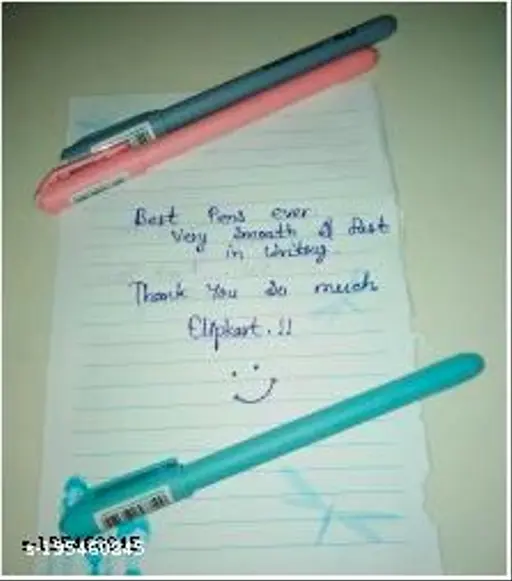 Best Pens ever
Very Smooth & fast
in writing
Thank You So much
Flipkart.!!
s-195460845